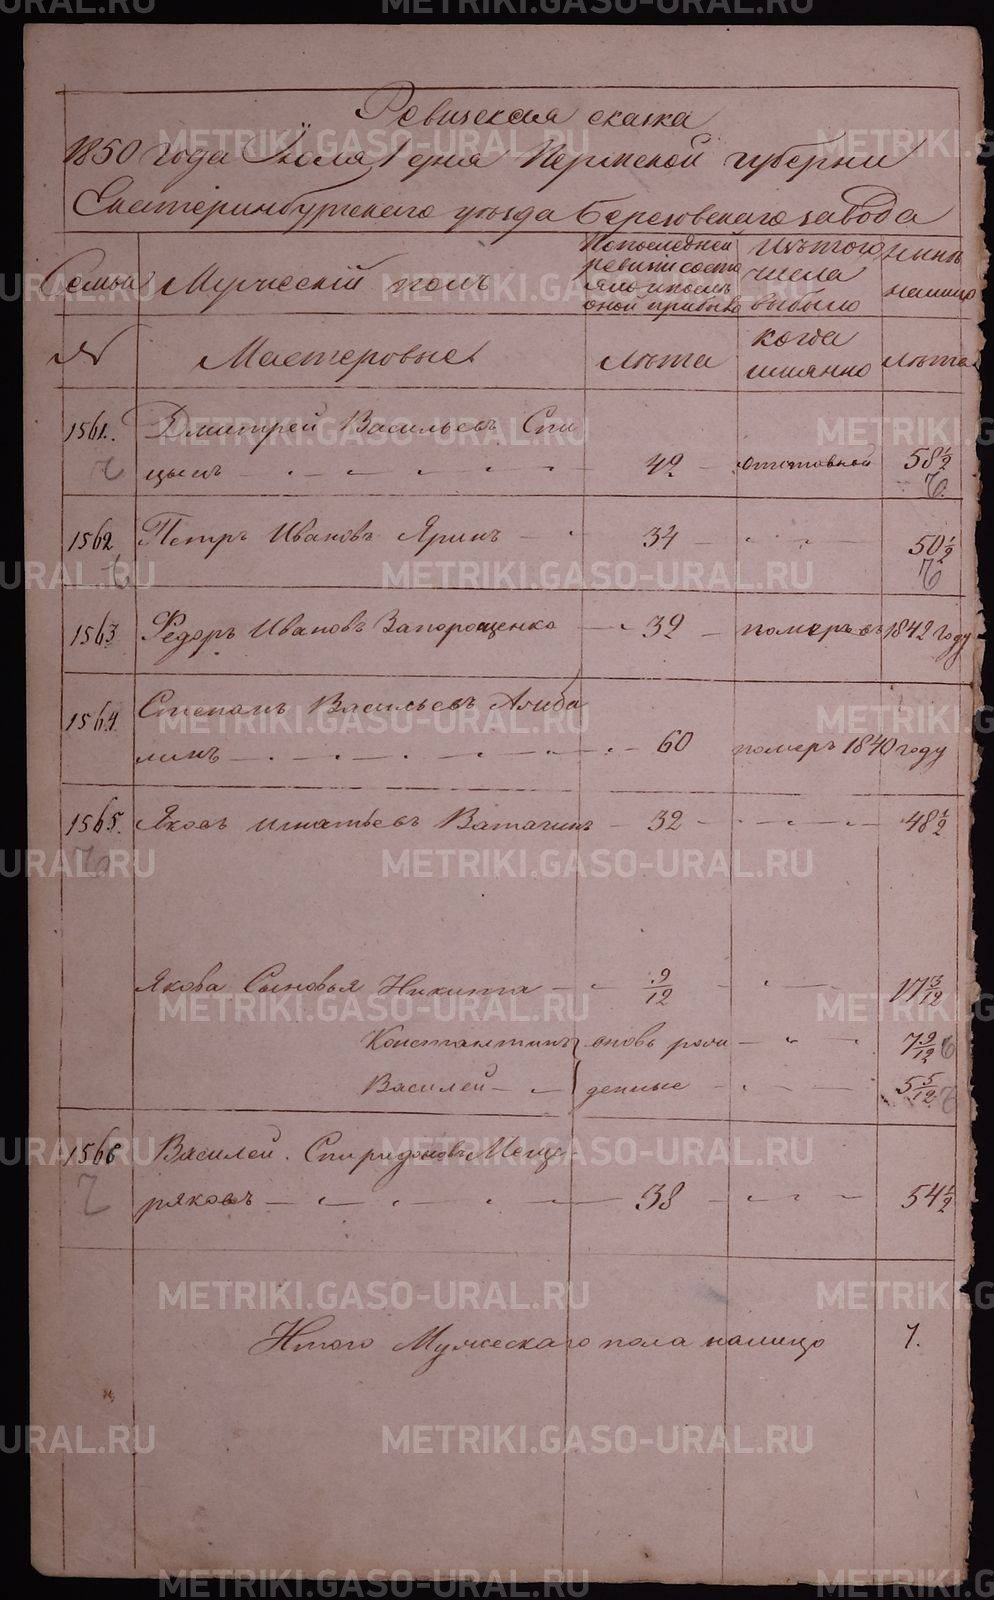 Ревизская сказка
1850 года Июля 1 дня Пермской губернии
Екатеринбургскаго уезда Березовскаго завода
Семьи
Мужескій полъ
По последней ревизіи состо яло и посль оной прибыло
Изъ того числа выбыло
Нынѣ налицо
№
Мастеровые
лѣта
когда имянно
лѣта
1561. Дмитрей Васильевъ Спи
цынъ 42 отставной 58 1/2
1562 Петръ Ивановъ Яринъ 34 50 1/2
1563 Федоръ Ивановъ Запорощенко 32 померъ въ 1842 году
1564. Степанъ Васильевъ
линъ 60 померъ 1840 году
1565. Яковъ Игнатьевъ Ватагинъ 32 48 1/2
Якова Сыновья Никита 9/12 17 3/12
Константинъ вновь рож 7 9/12
Василей денные 5 5/12
1566 Василей Спиридоновъ Меще
ряковъ 38 54 1/2
Итого Мужескаго пола налицо 7.
METRIKI.GASO-URAL.RU